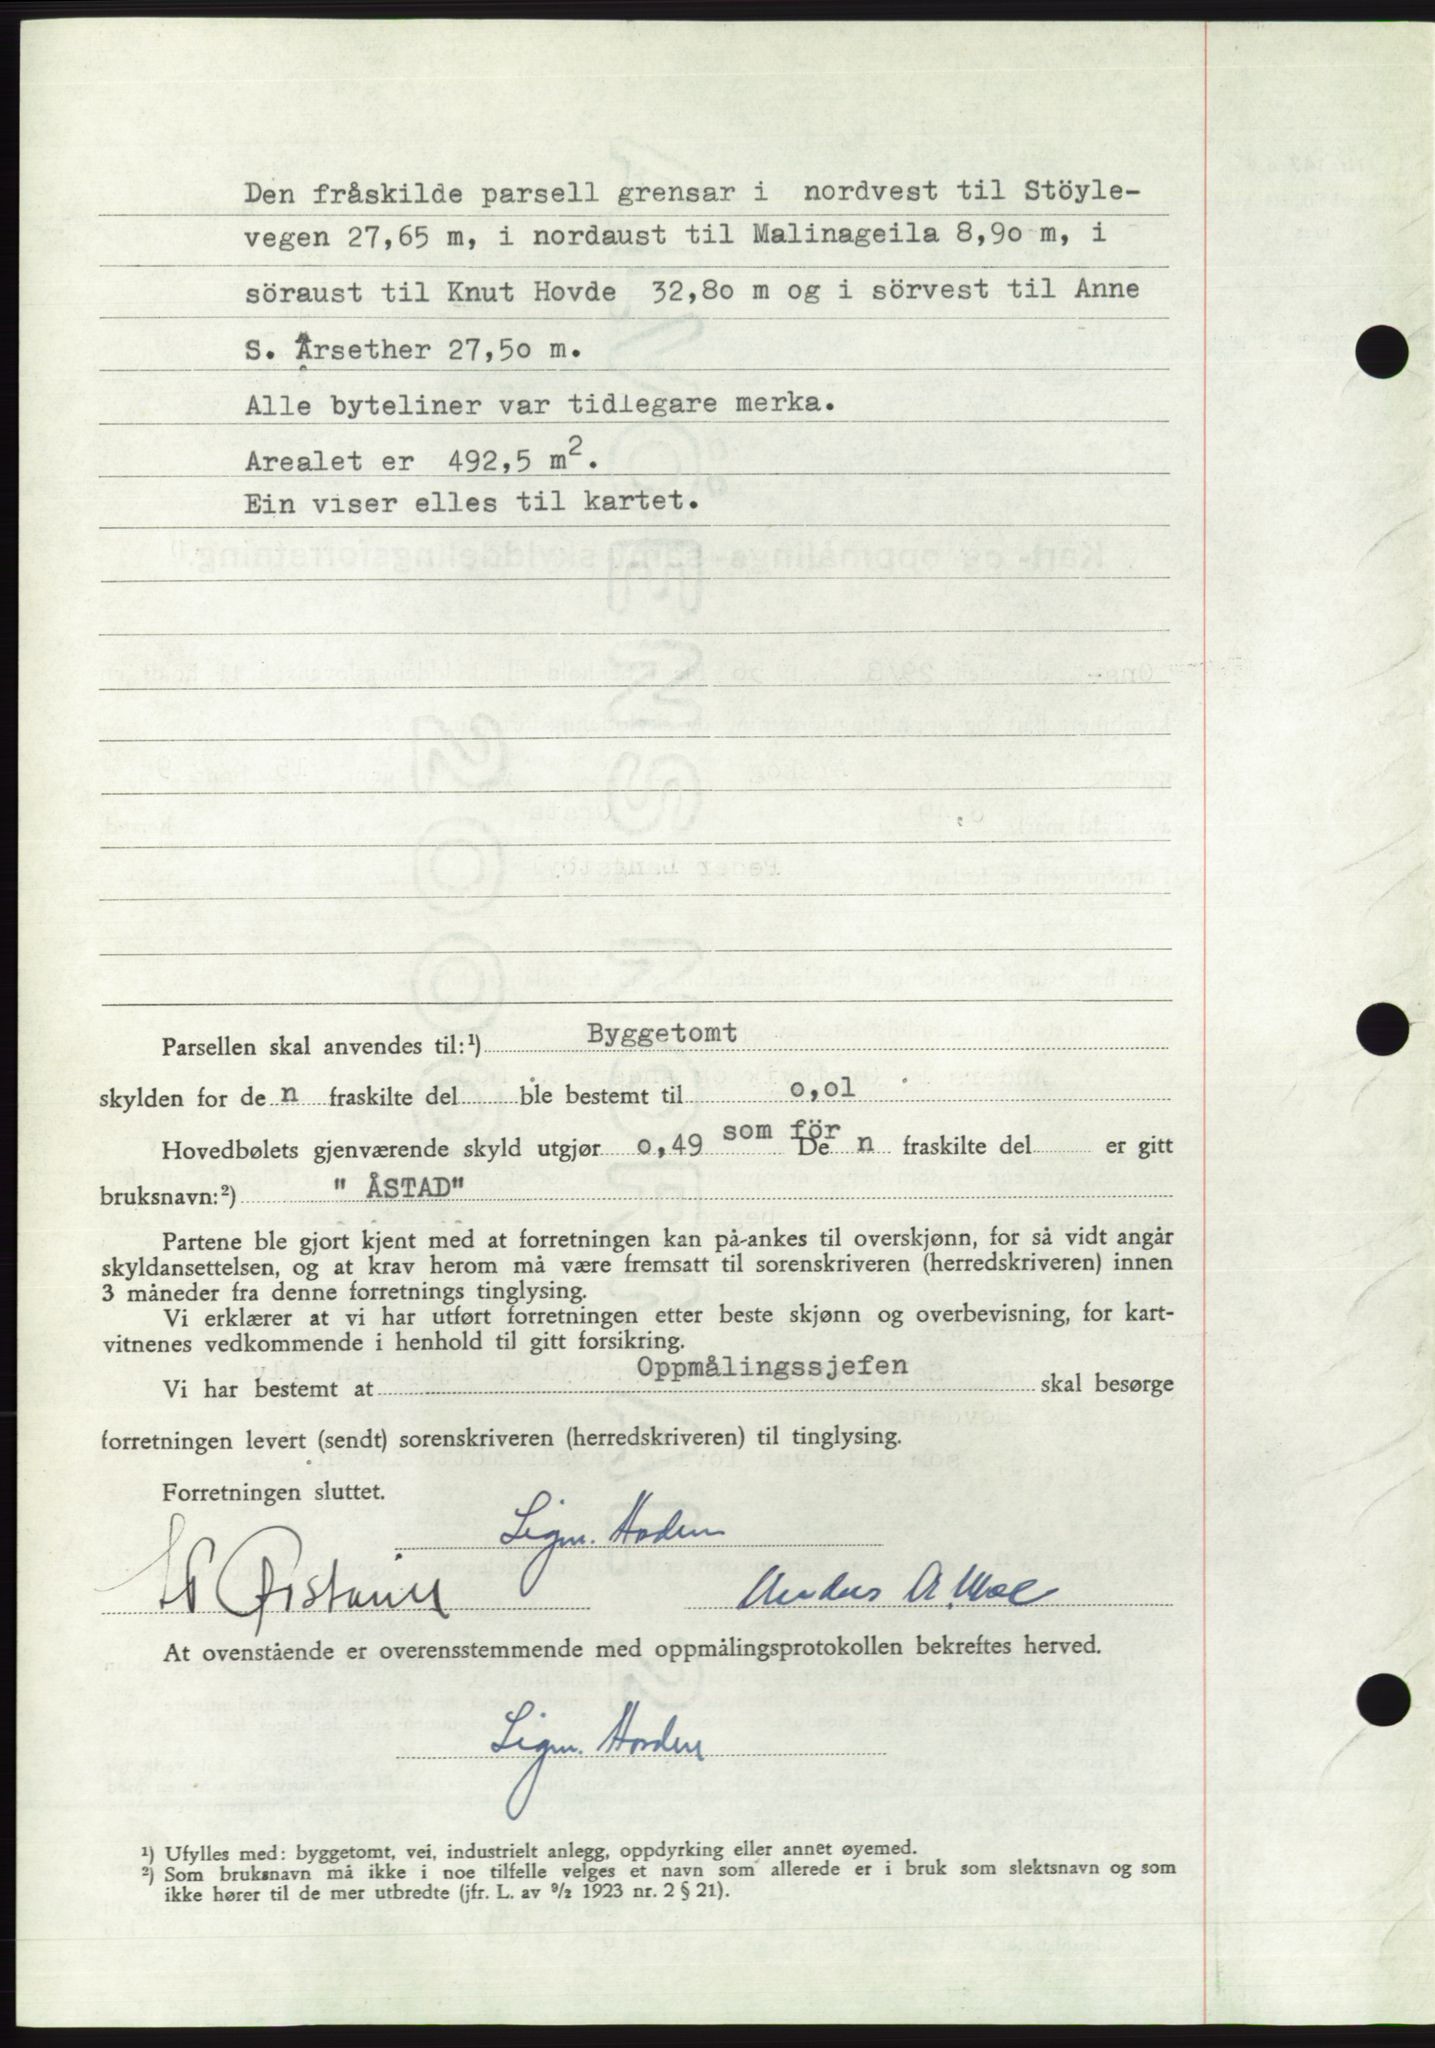 Den fråskilde parsell grensar i nordvest til Stöyle-
vegen 27,65 m, i nordaust til Malinageila 8,90 m, i
söraust til Knut Hovde 32,80 m og i sörvest til Anne
S. Årsether 27,50 m.
Alle byteliner var tidlegare merka.
Arealet er 492,5 m².
Ein viser elles til kartet.
Parsellen skal anvendes til:¹) Byggetomt
skylden for de n fraskilte del ble bestemt til 0,01
Hovedbølets gjenværende skyld utgjør 0,49 som för De n fraskilte del er gitt
bruksnavn:²) " ÅSTAD"
Partene ble gjort kjent med at forretningen kan på-ankes til overskjønn, for så vidt angår
skyldansettelsen, og at krav herom må være fremsatt til sorenskriveren (herredskriveren) innen
3 måneder fra denne forretnings tinglysing.
Vi erklærer at vi har utført forretningen etter beste skjønn og overbevisning, for kart-
vitnenes vedkommende i henhold til gitt forsikring.
Vi har bestemt at Oppmålingssjefen skal besørge
forretningen levert (sendt) sorenskriveren (herredskriveren) til tinglysing.
Forretningen sluttet.
Sigm. Horden
Anders A. Moe
At ovenstående er overensstemmende med oppmålingsprotokollen bekreftes herved.
Sigm. Horden
¹) Ufylles med: byggetomt, vei, industrielt anlegg, oppdyrking eller annet øyemed.
²) Som bruksnavn må ikke i noe tilfelle velges et navn som allerede er i bruk som slektsnavn og som
ikke hører til de mer utbredte (jfr. L. av 9/2 1923 nr. 2 § 21).